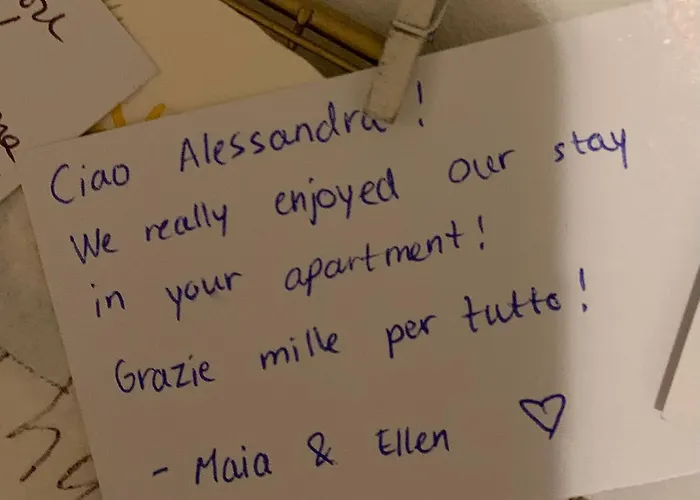 Ciao Alessandra!
We really enjoyed our stay
in your apartment!
Grazie mille per tutto!
- Maia & Ellen ♡